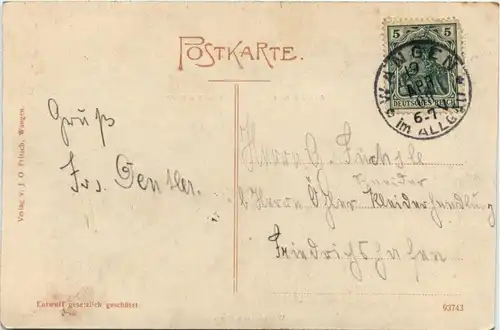 POSTKARTE.
5 5
DEUTSCHES REICH
WANGEN
19
APR
6-7
im ALLGÄU
Gruß
Jos.
Herrn G. Füchsle
Schneider
b/Herrn Kleiderhandlung
Friedrichshafen
Verlag v. J O Fritsch, Wangen.
Entwurf gesetzlich geschützt.
93743